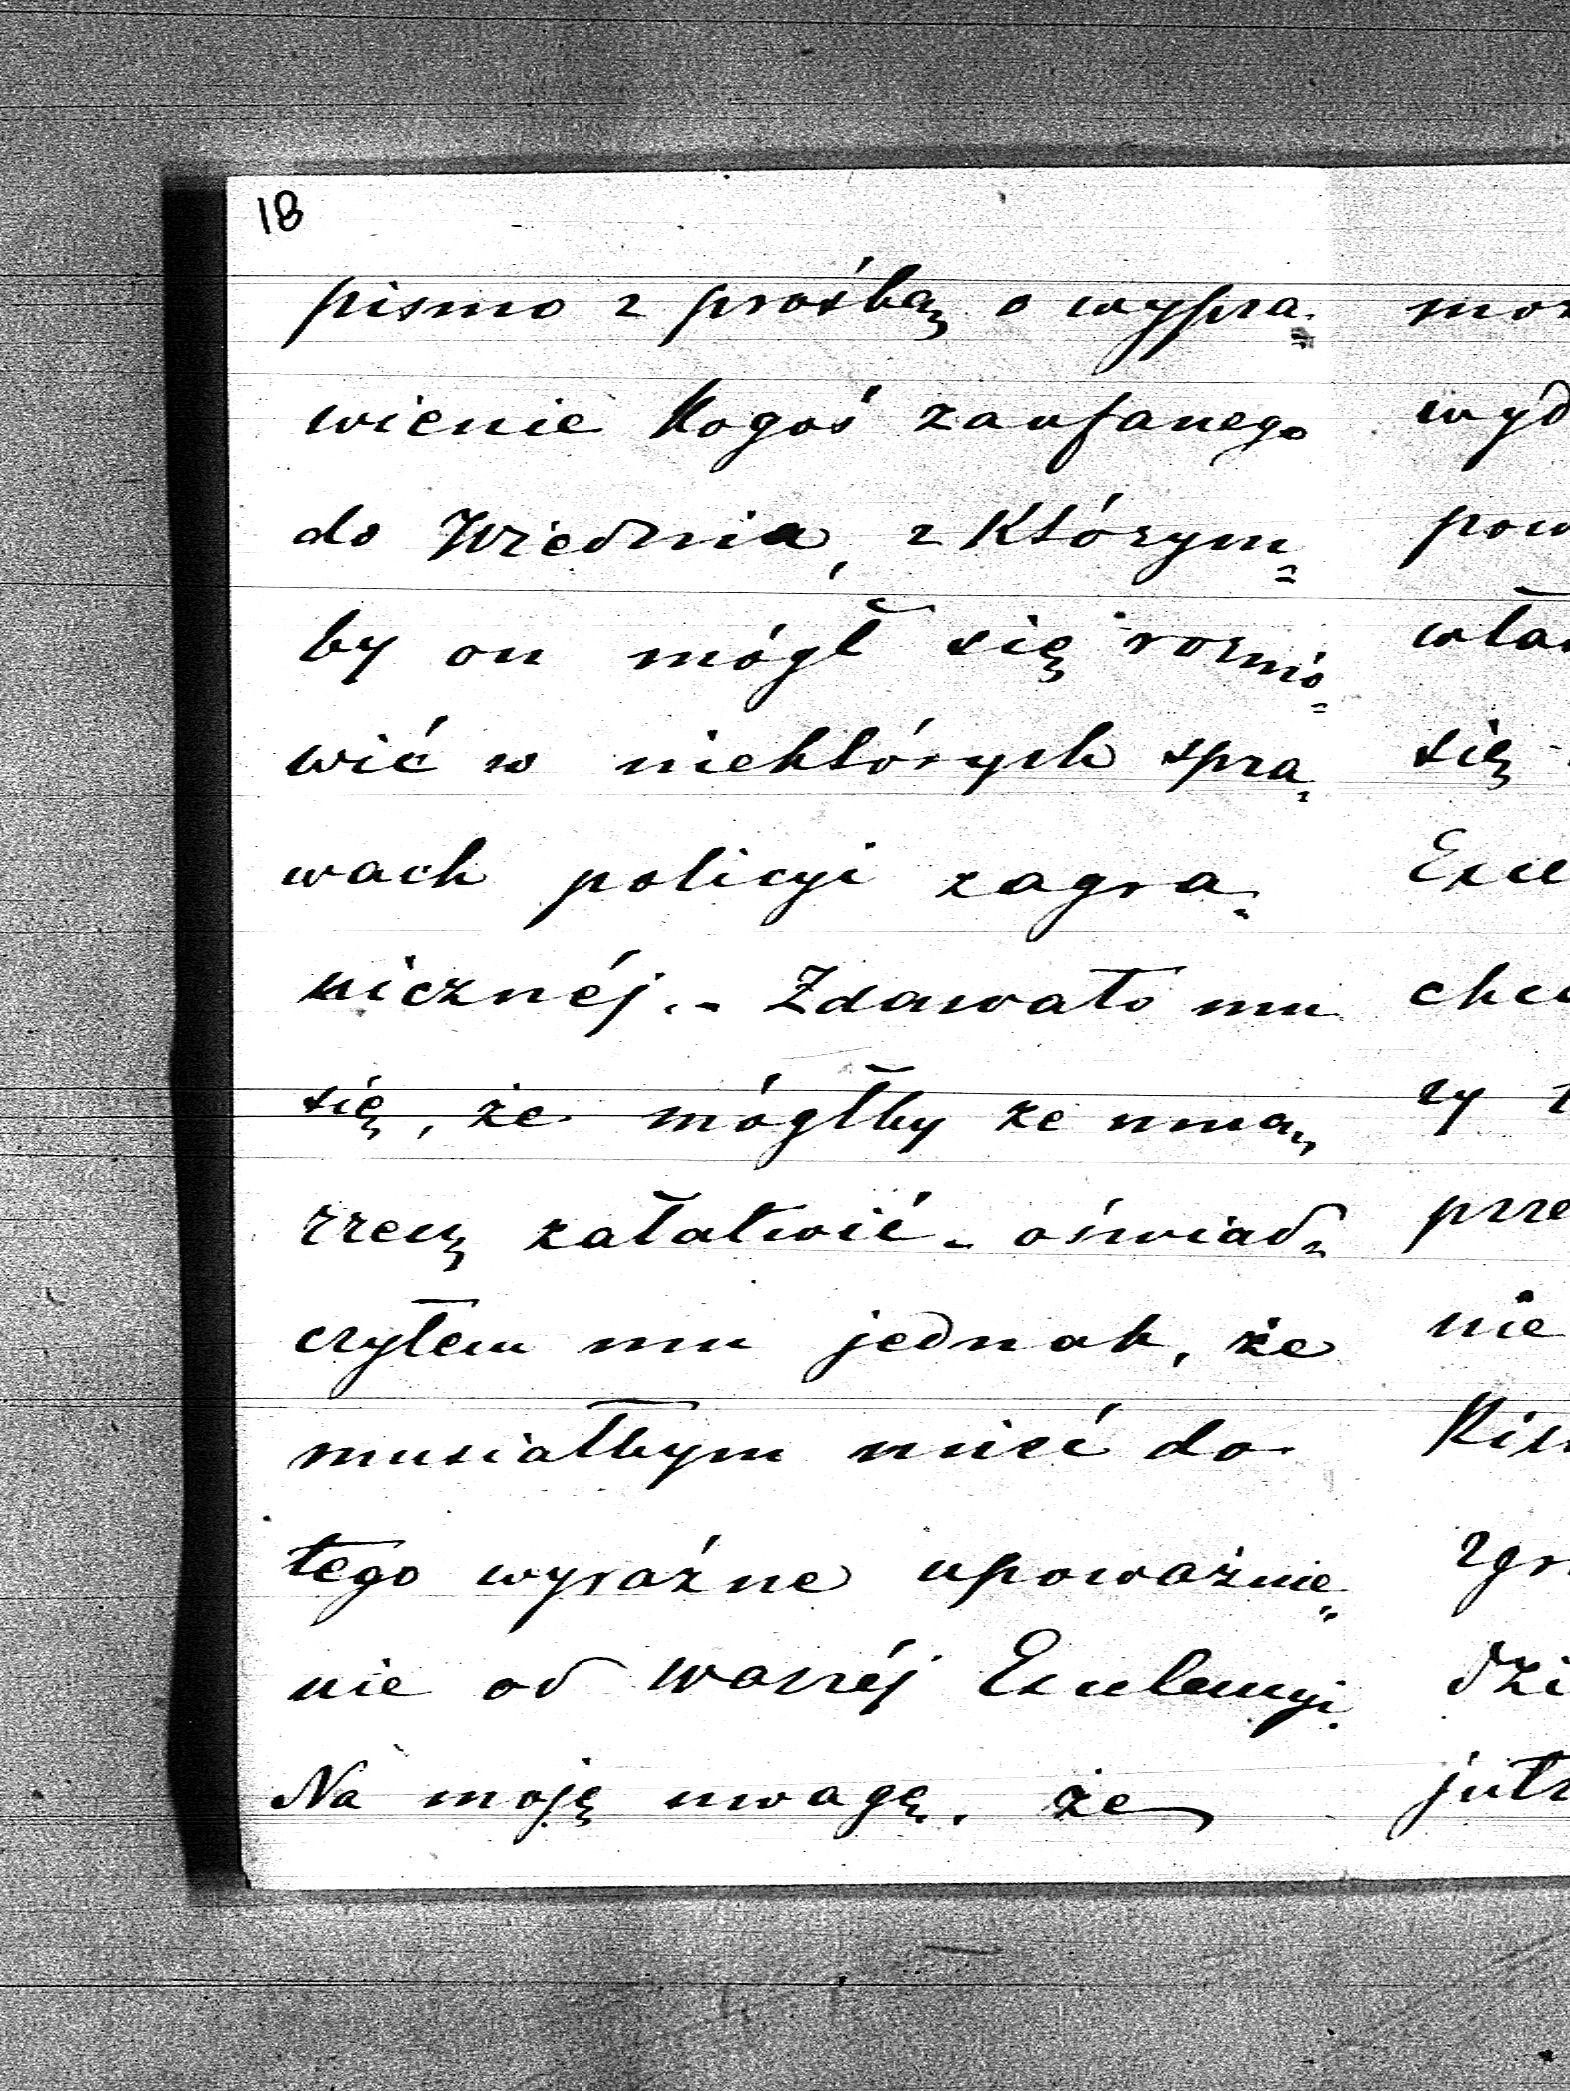 18
pismo z prośbą o wypra=
wienie kogoś zaufanego
do Wiednia, z którym=
by on mógł się rozmó=
wić w niektórych spra=
wach policyi zagra=
nicznéj.- Zdawało mu
się, że mógłby ze mną
rzecz załatwić - oświad=
czyłem mu jednak, że
musiałbym mieć do
tego wyraźne upoważnie=
nie od waszéj Excelencyi.
Na moję uwagę, że
wyd
pow
się
chce
prze
nie
dzi